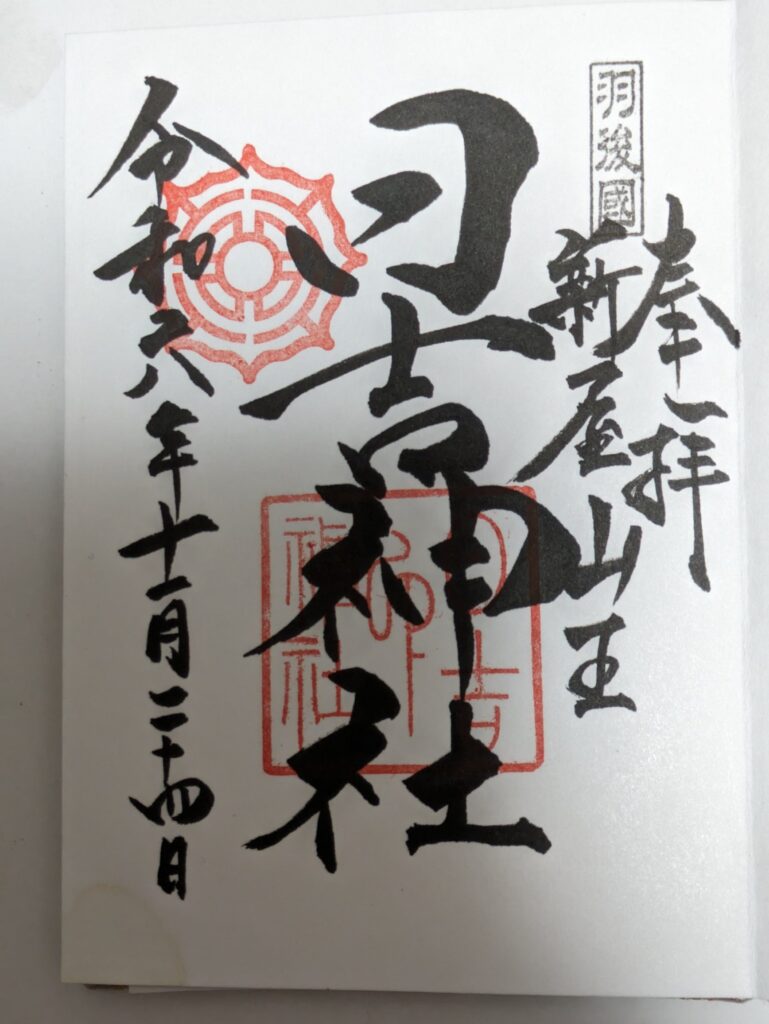 奉拝
羽後國
新屋山王
日吉神社
日吉
神社
令和六年十一月二十四日